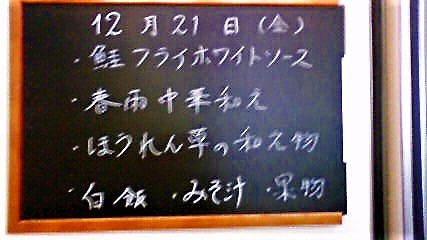 12月21日(金)
・鮭フライホワイトソース
・春雨中華和え
・ほうれん草の和え物
・白飯 ・みそ汁 ・果物